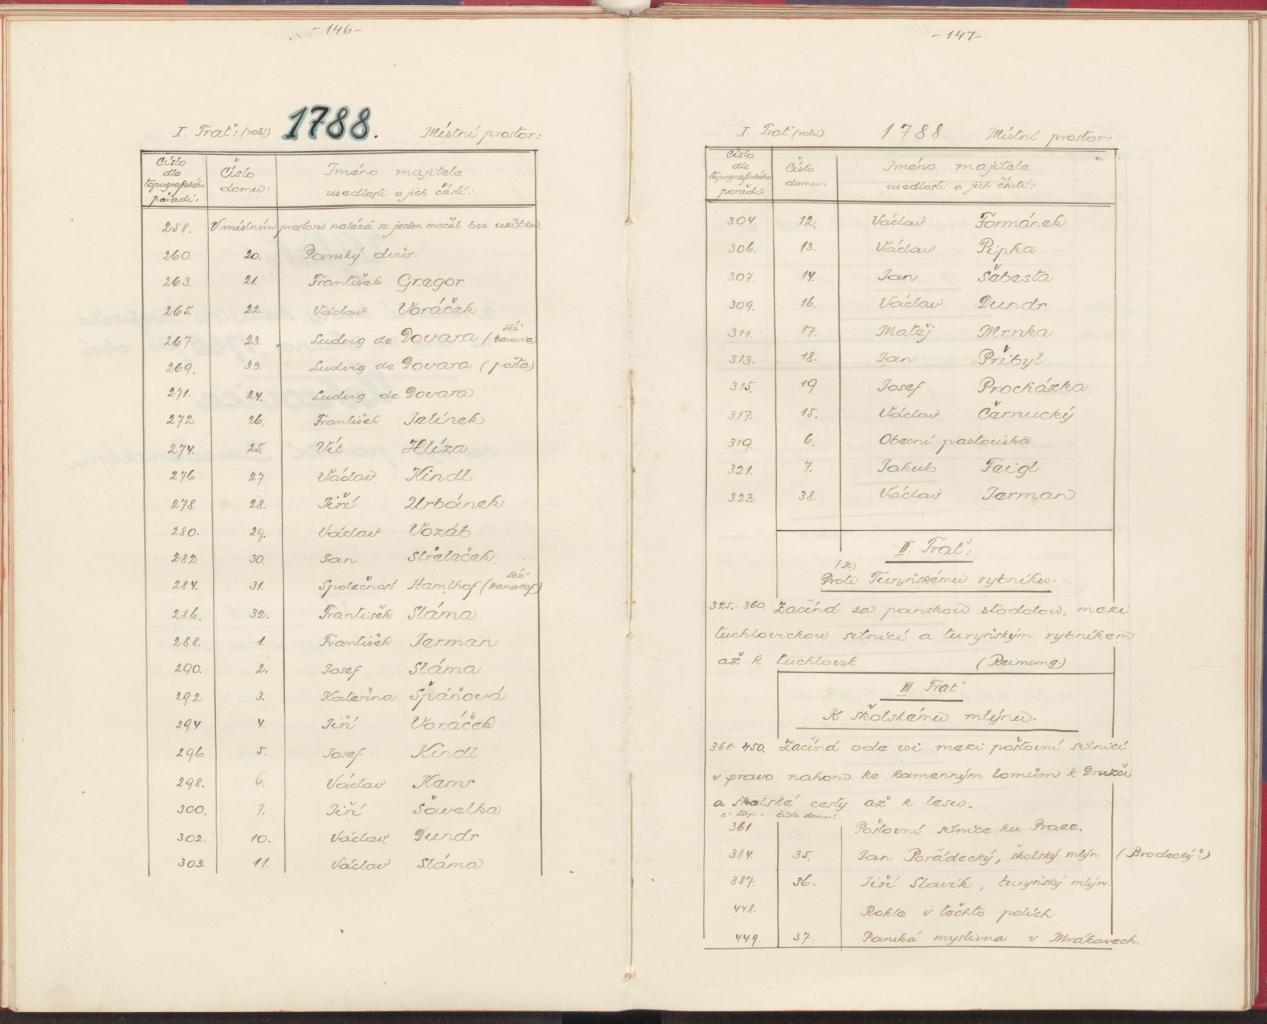 -146-
I. Trať: (role) 1788. Místní prostor:
Číslo dle topografického pořádí: Číslo domu: Jméno majitele usedlosti a jich částí:
258. V místním prostoru nalézá se jeden močál bez užitku
260. 20. Panský dvůr.
263. 21. František Gregor
265. 22. Václav Voráček
267. 23. Ludvig de Dovara (též
269. 33. Ludvig de Dovara (pošta)
271. 24. Ludvig de Dovara
272. 26. František Jelínek
274. 25. Vít Hlíza
276 27 Václav Kindl
278 28. Jiří Urbánek
280. 29. Václav Vozáb
282 30. Jan Střeleček
284. 31. Společnost Hamlhof (též
286. 32. František Sláma
288. 1. František Jerman
290. 2. Josef Sláma
292 3. Kateřina Špáňová
294 4 Jiří Voráček
296 5. Josef Kindl
298. 6. Václav Kems
300. 7. Jiří Šavelka
302. 10. Václav Dundr
303. 11. Václav Sláma
-147-
I. Trať (role) 1788 Místní prostor:
Číslo dle topografického pořádí: Číslo domu: Jméno majitele usedlosti a jich částí:
304. 12. Václav Formánek
306. 13. Václav Pipka
307. 14. Jan Šebesta
309. 16. Václav Dundr
311. 17. Matěj Mrnka
313. 18. Jan Přibyl
315. 19 Josef Procházka
317. 15. Václav Černucký
319. 6. Obecní pastouška
321. 7. Jakub Feigl
323. 38. Václav Jerman
II Trať:
Proti Turyňskému rybníku.
325.-360. Začíná za panskou stodolou, mezi
tuchlovickou silnicí a turyňským rybníkem
až k tuchlovek (Reimung)
III. Trať
K školskému mlýnu.
361-450. Začíná ode vsi mezi poštovní silnicí
v pravo nahoru ke kamenným lomům k Družci
a školské cesty až k lesu.
č. top.: číslo domu:
361 Poštovní silnice ku Praze.
384. 35. Jan Pořádecký, školský mlýn (Brodecký?)
387. 36. Jiří Slavík, turyňský mlýn.
448. Rokle v těchto polích
449. 37. Panská myslivna v Mrákavech.